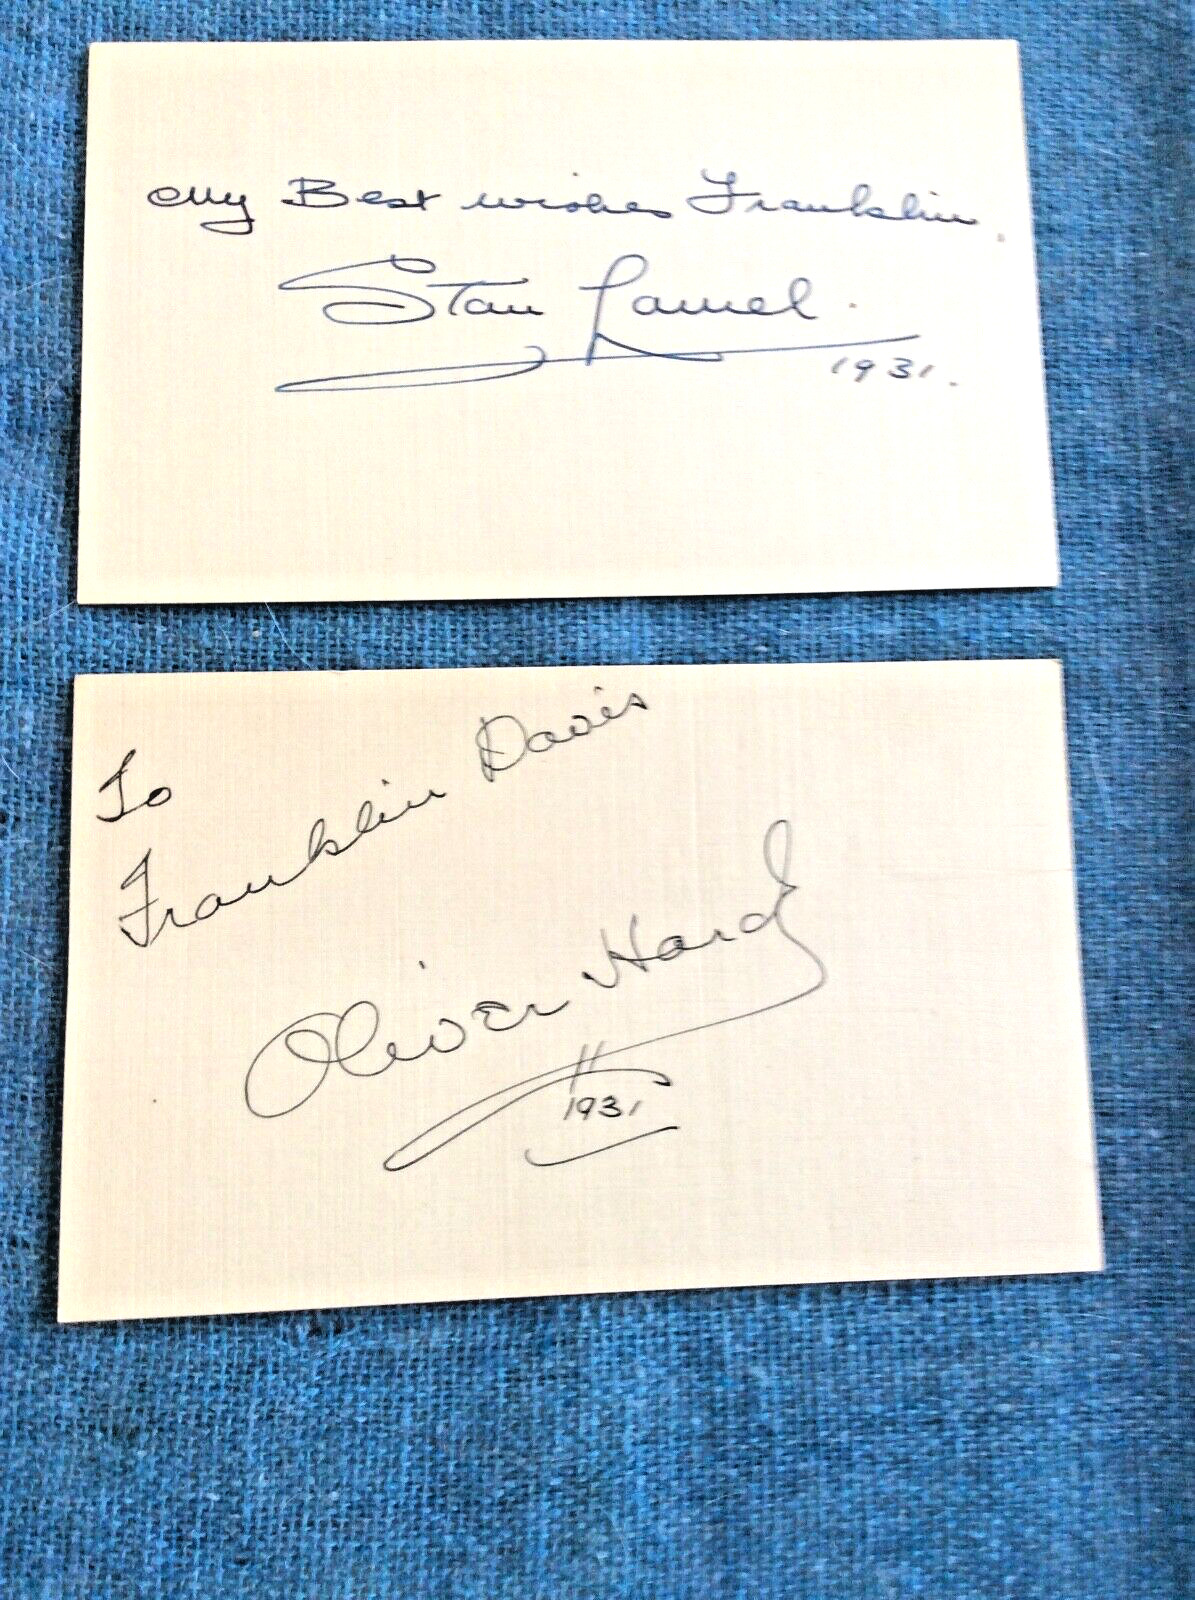 My Best wishes Franklin.
Stan Laurel.
1931.
To
Franklin Davis
Oliver Hardy
1931